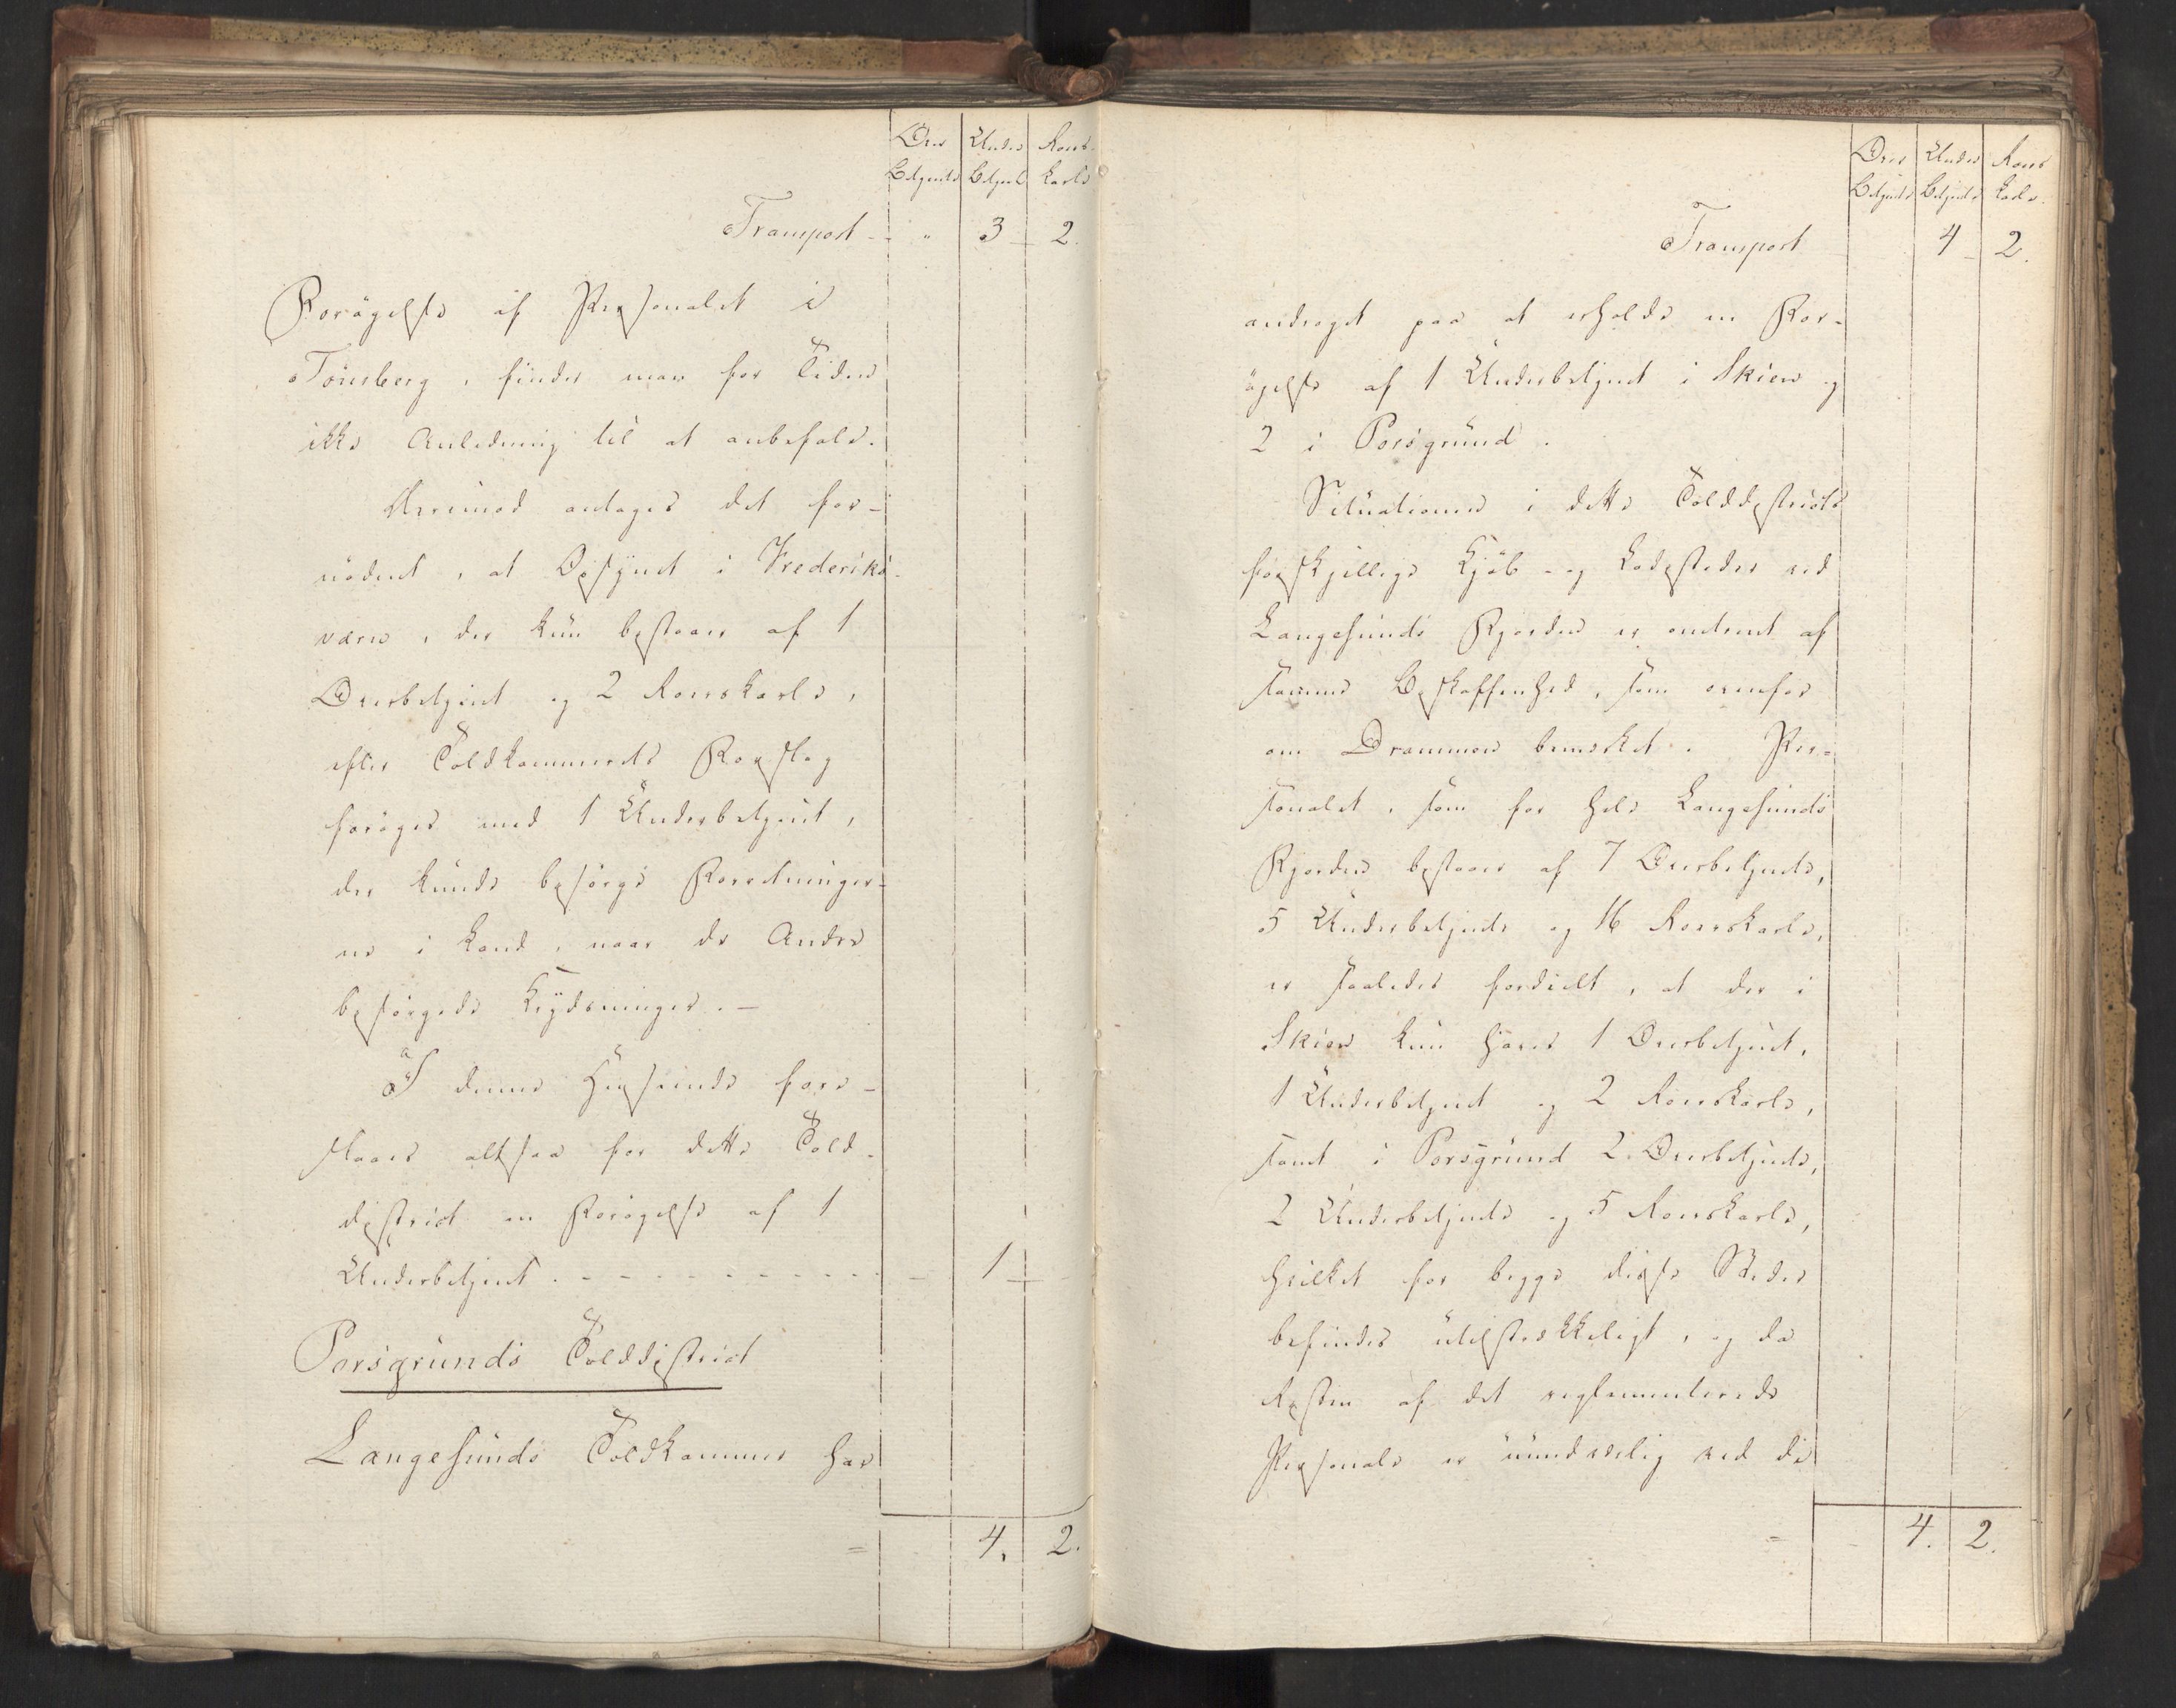 Over Under Rors-
Betjente Betjent Karle
Transport - " 3 - 2.
Forøgelse af Personalet i
Tönsberg, finder man for Tiden
ikke Anledning til at anbefale.
Derimod antages det for-
nödent, at Opsynet i Frederiks-
værn, der kun bestaaer af 1
Overbetjent og 2 Rorskarle,
efter Toldkammerets Forslag
forøges med 1 Underbetjent,
der kunde besörge Forretninger-
ne i Land, naar de Andre
besörgede Krydsninger. -
I denne Henseende fore-
slaaes altsaa for dette Told-
district en Forøgelse af 1
Underbetjent . - - - - - - - - - - 1 -
Porsgrunds Tolddistrict
Langesunds Toldkammer har
= 4. 2.
Over Under Rors
Betjente Betjente Karle.
Transport 4 - 2.
andraget paa at erholde en For-
øgelse af 1 Underbetjent i Skien og
2 i Porsgrund.
Situationen i dette Tolddistricts
forskjellige Kjöb- og Ladesteder ved
Langesunds Fjorden er omtrent af
samme Beskaffenhed, som ovenfor
om Drammen bemærket. Per-
sonalet, som for hele Langesunds
Fjorden bestaaer af 7 Overbetjente,
5 Underbetjente og 16 Rorskarle,
er saaledes fordeelt, at der i
Skien kun haves 1 Overbetjent,
1 Underbetjent og 2 Rorskarle,
samt i Porsgrund 2 Overbetjente,
2 Underbetjente og 5 Rorskarle,
hvilket for begge disse Steder
befindes utilstrækkeligt, og da
Resten af det reglementerede
Personale er uundværlig ved de
= - 4. 2.